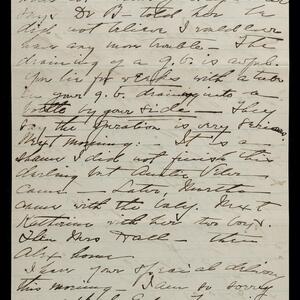 days. Dr B— told her he
did not believe I could ever
have any more trouble — The
draining of a g.b. is awful.
You lie for weeks with a tube
in your g.b. draining into a
bottle by your side — They
say the operation is very serious.
Next morning: It is a
shame I did not finish this
darling but Auntie
came — Later,
came with the baby. Next
Katherine with her two boys.
Then Mrs Hall — then
Alex home
I have your special delivery
this morning — I am so sorry